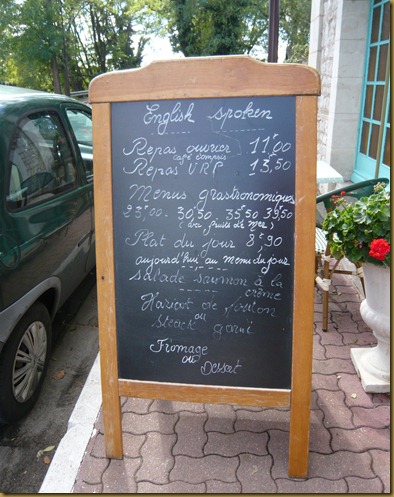 English spoken
Repas ouvrier 11€00
café compris
Repas VRP 13€50
Menus grastronomiques
23,00. 30,50 35,50 39,50
(avec fruits de mer)
Plat du jour 8€90
aujourd'hui au menu du jour
salade saumon à la
crème
Haricot de mouton
ou
steack garni
Fromage
ou
Dessert